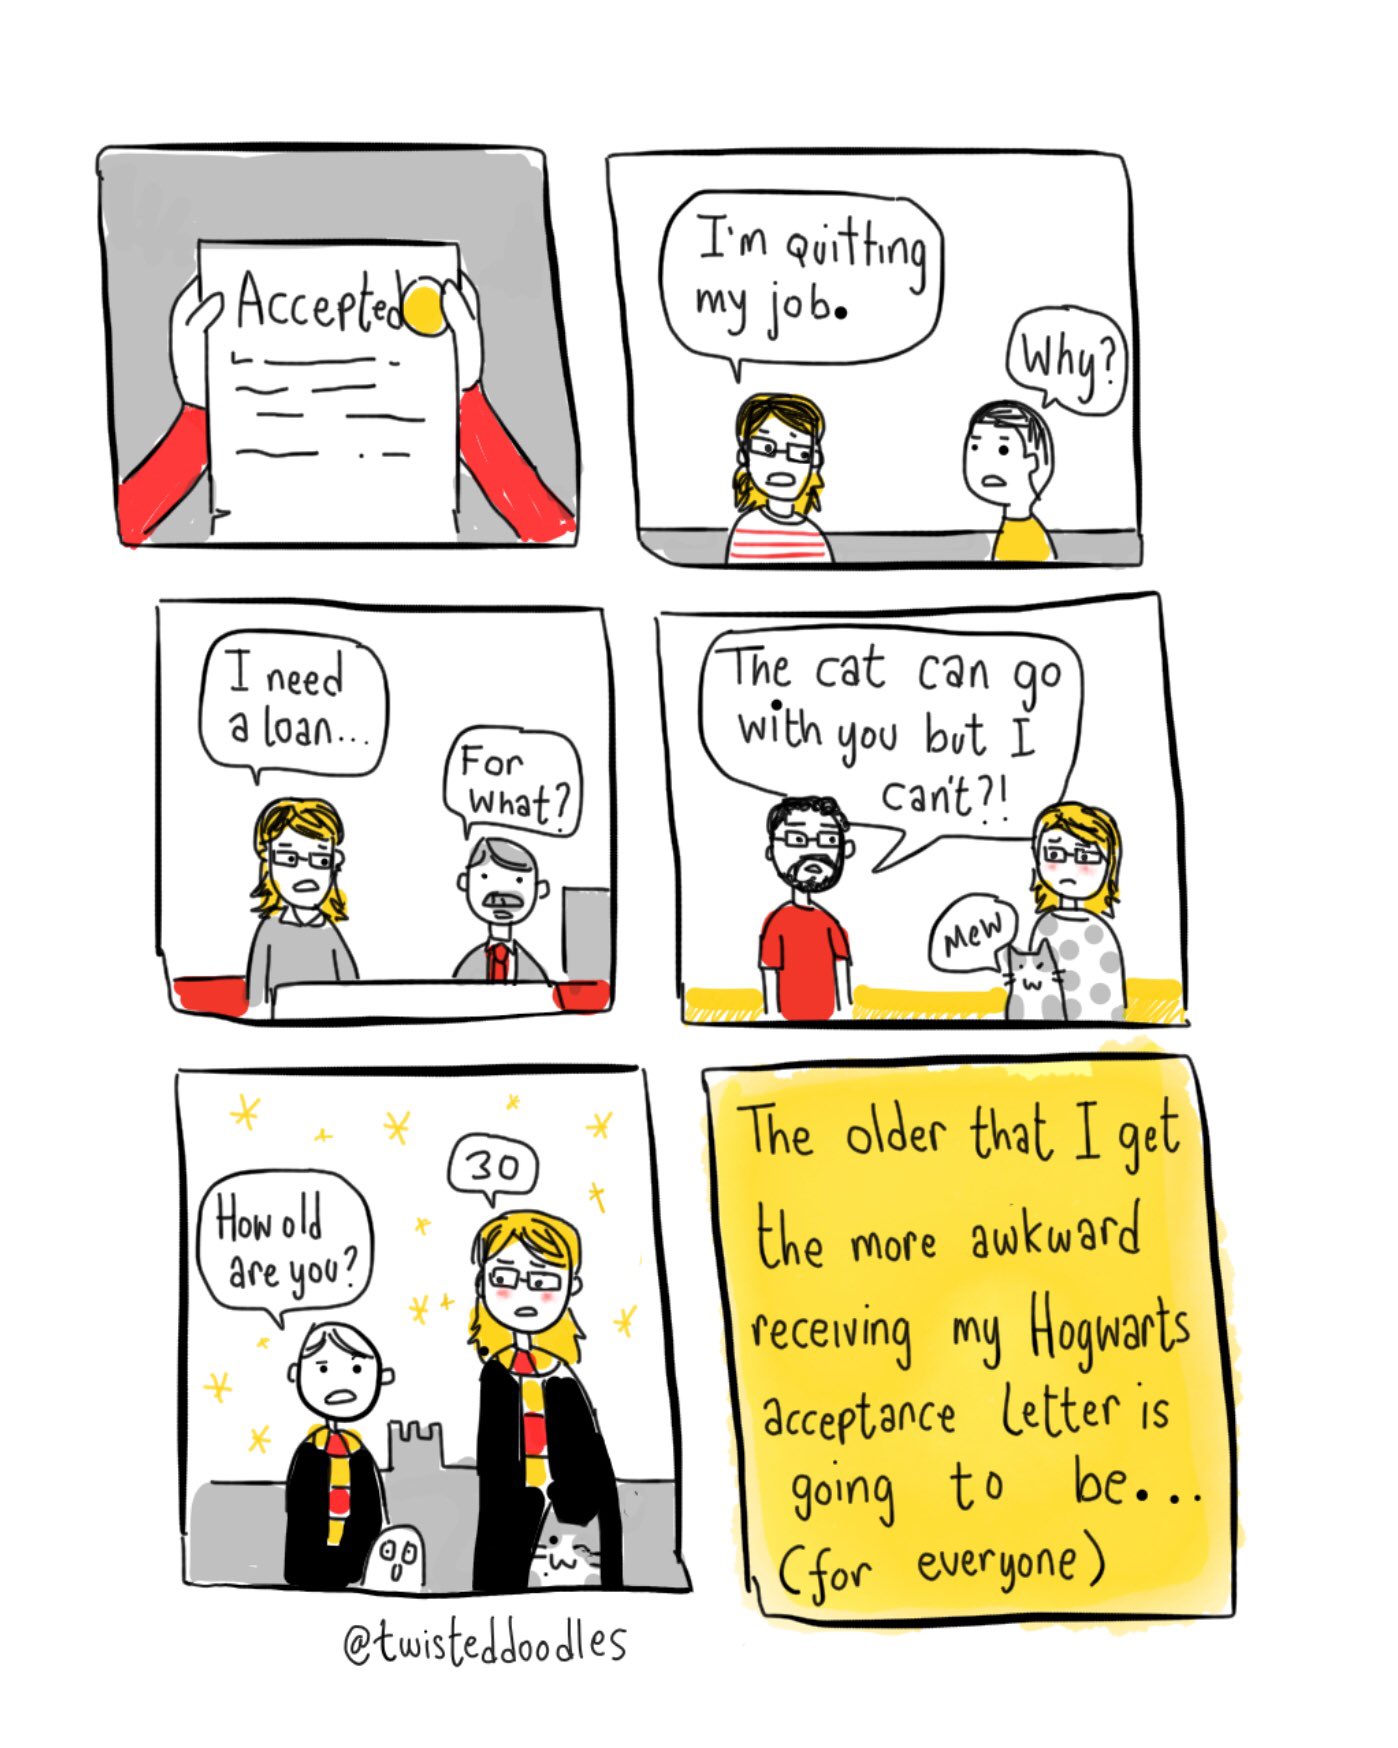 Accepted
I'm quitting
my job.
Why?
I need
a loan...
For
what?
The cat can go
with you but I
can't?!
Mew
How old
are you?
30
The older that I get
the more awkward
receiving my Hogwarts
acceptance letter is
going to be...
(for everyone)
@twisteddoodles